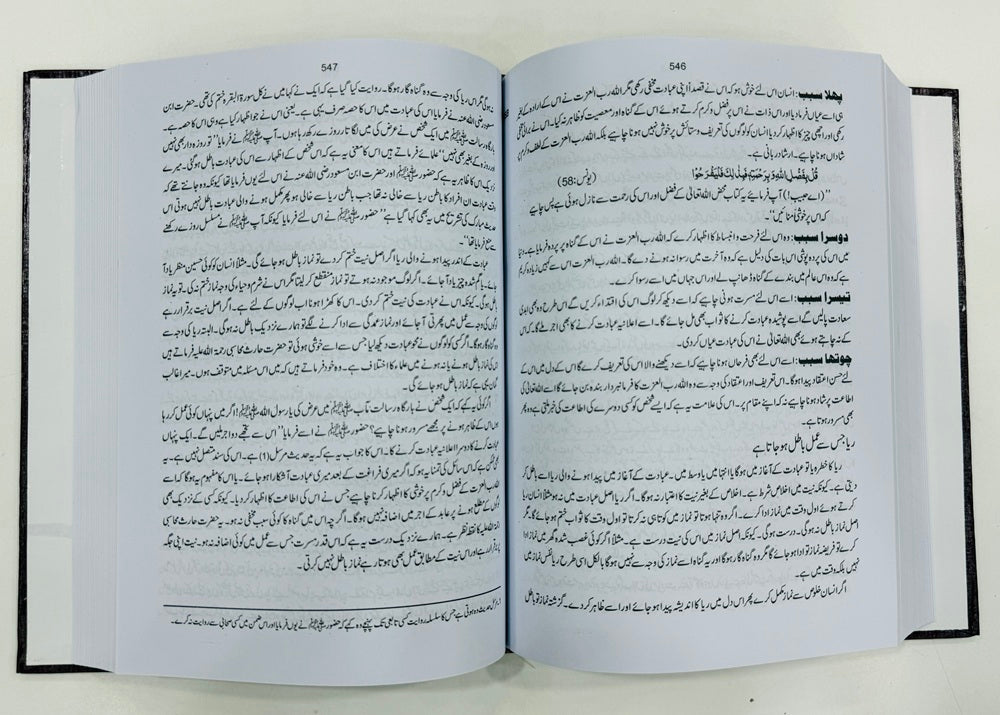 546
پہلا سبب: انسان اس لئے خوش ہو کہ اس نے قصداً اپنی عبادت مخفی رکھی مگر اللہ رب العزت نے اس کے ارادہ کے بغیر
ہی اسے عیاں فرما دیا اور اس ذات نے اس پر فضل و کرم کرتے ہوئے اس کے گناہ اور معصیت کو ظاہر نہ کیا۔ اس نے برائی مخفی
رکھی اور اچھی چیز کا اظہار کر دیا انسان کو لوگوں کی تعریف و ستائش پر خوش نہیں ہونا چاہیے بلکہ اللہ رب العزت کے لطف و کرم پر
شاداں ہونا چاہیے۔ ارشاد ربانی ہے۔
قُلْ بِفَضْلِ اللّٰهِ وَ بِرَحْمَتِهٖ فَبِذٰلِكَ فَلْيَفْرَحُوْا (یونس:58)
"(اے حبیب!) آپ فرمائیے یہ کتاب محض اللہ تعالیٰ کے فضل اور اس کی رحمت سے نازل ہوئی ہے پس چاہیے
کہ اس پر خوشی منائیں"۔
دوسرا سبب: وہ اس لئے فرحت و انبساط کا اظہار کرے کہ اللہ رب العزت نے اس کے گناہ پر پردہ فرمایا ہے، دنیا
میں اس کی پردہ پوشی اس بات کی دلیل ہے کہ وہ آخرت میں رسوا نہ ہونے دے گا۔ اللہ رب العزت اس سے کہیں زیادہ کریم
ہے کہ وہ اس عالم میں بندے کے گناہ ڈھانپ لے اور اس جہاں میں اسے رسوا کرے۔
تیسرا سبب: اسے اس لئے مسرت ہونی چاہیے کہ اسے دیکھ کر لوگ اس کی اقتداء کریں گے اس طرح وہ بھی ابدی
سعادت پالیں گے اسے پوشیدہ عبادت کرنے کا ثواب بھی مل جائے گا۔ اسے اعلانیہ عبادت کرنے کا بھی اجر ملے گا۔ کہ اس
کے نہ چاہتے ہوئے بھی اللہ تعالیٰ نے اس کی عبادت عیاں کر دی۔
چوتھا سبب: اسے اس لئے بھی فرحاں ہونا چاہیے کہ اسے دیکھنے والا اس کی تعریف کرے گا اس کے دل میں اس کے
لئے حسن اعتقاد پیدا ہوگا۔ اس تعریف اور اعتقاد کی وجہ سے وہ اللہ رب العزت کا فرمانبردار بندہ بن جائے گا اسے اللہ تعالیٰ کی
اطاعت پر شاد ہونا چاہیے نہ کہ اپنے مقام پر۔ اس کی علامت یہ ہے کہ ایسے شخص کو کسی دوسرے کی اطاعت کی خبر ملتی ہے وہ پھر
بھی مسرور ہوتا ہے۔
ریا جس سے عمل باطل ہو جاتا ہے
ریا کا خطرہ یا تو عبادت کے آغاز میں ہوگا یا انتہا میں یا وسط میں۔ عبادت کے آغاز میں پیدا ہونے والی ریا اسے باطل کر
دیتی ہے۔ کیونکہ نیت میں اخلاص شرط ہے۔ اخلاص کے بغیر نیت کا اعتبار نہ ہوگا۔ اگر ریا اصل عبادت میں نہ ہو مثلاً انسان ریا
کرتے ہوئے اول وقت میں نماز ادا کرے۔ اگر وہ تنہا ہوتا تو نماز میں کوتاہی نہ کرتا تو اول وقت کا ثواب ختم ہو جائے گا۔ مگر
اصل نماز باطل نہ ہوگی۔ درست ہوگی۔ کیونکہ اصل نماز میں اس کی نیت درست ہے۔ مثلاً اگر کوئی غصب شدہ گھر میں نماز ادا
کرے تو فریضہ نماز تو ادا ہو جائے گا مگر وہ گناہ گار ہوگا اور یہ گناہ اسے نماز کی وجہ سے نہیں ہوگا بالکل اسی طرح ریا نفس نماز میں
نہیں بلکہ وقت میں ہے۔
اگر انسان خلوص سے نماز مکمل کرے پھر اس دل میں ریا کا اندیشہ پیدا ہو جائے اور اسے ظاہر کر دے۔ گزشتہ نماز تو باطل
547
نہ ہوگی مگر اس ریا کی وجہ سے وہ گناہ گار ہوگا۔ روایت کیا گیا ہے کہ ایک نے کہا میں نے کل سورۃ البقرہ ختم کی تھی۔ حضرت ابن
مسعود رضی اللہ عنہ نے فرمایا اس کی عبادت میں اس کا حصہ صرف یہی ہے۔ یعنی اس نے جو اظہار کیا ہے وہی اس کا حصہ ہے۔
بارگاہ رسالت میں ایک شخص نے عرض کی میں لگاتار روزے رکھ رہا ہوں۔ آپ ﷺ نے فرمایا "تو روزہ دار بھی نہیں
اور روزے کے بغیر بھی نہیں" علمائے فرماتے ہیں اس کا معنی یہ ہے کہ اس شخص کے اظہار سے اس کی عبادت باطل ہوگئی۔ میرے
نزدیک اس کا ظاہر یہ ہے کہ حضور ﷺ اور حضرت ابن مسعود رضی اللہ عنہ نے اس لئے یوں فرمایا تھا کیونکہ وہ جانتے تھے کہ
وقت عبادت ان افراد کا باطن ریا سے خالی نہ تھا جب باطن ریا سے خالی ہو پھر مکمل ہونے والی عبادت باطل نہیں ہوتی اس
حدیث مبارک کی تشریح میں یہ بھی کہا گیا ہے "حضور ﷺ نے اس لئے فرمایا کیونکہ آپ ﷺ نے مسلسل روزے رکھنے
سے منع فرمایا تھا"۔
عبادت کے اندر پیدا ہونے والی ریا اگر اصل نیت ختم کر دے تو نماز باطل ہو جائے گی۔ مثلاً انسان کو کوئی حسین منظر یاد آ
جائے۔ یا گم شدہ چیز یاد آ جائے۔ اگر لوگ موجود نہ ہوتے تو نماز منقطع کر لیتا مگر اس نے شرم و حیاء کی وجہ نماز ختم نہ کی۔ تو یہ نماز
باطل ہوگی۔ کیونکہ اس نے عبادت کی نیت ختم کر دی۔ اس کا کھڑا ہونا اب لوگوں کے لئے ہے۔ اگر اصل نیت برقرار رہے
لوگوں کی وجہ سے عمل میں پھرتی آ جائے اور نماز عمدگی سے ادا کرنے لگے تو ہمارے نزدیک باطل نہ ہوگی۔ البتہ ریا کی وجہ سے
وہ گناہ گار ہوگا۔ اگر کسی کو لوگوں نے محو عبادت دیکھ لیا جس سے اسے خوشی ہوئی تو حضرت حارث محاسبی رحمۃ اللہ علیہ فرماتے ہیں
اس کی نماز باطل ہونے یا نہ ہونے میں علماء کا اختلاف ہے۔ وہ خود فرماتے ہیں کہ میں اس مسئلہ میں متوقف ہوں۔ میرا غالب
گمان یہی ہے کہ نماز باطل ہو جائے گی۔
اگر کوئی یہ کہے کہ ایک شخص نے بارگاہ رسالت مآب ﷺ میں عرض کی یا رسول اللہ ﷺ! اگر میں پنہاں کوئی عمل کر رہا
ہوں اس کے ظاہر ہونے پر مجھے مسرور ہونا چاہیے؟ حضور ﷺ نے اسے فرمایا "اس سے تجھے دو اجر ملیں گے۔ ایک پنہاں
عبادت کرنے کا دوسرا اعلانیہ عبادت کرنے کا۔ اس کا جواب یہ ہے کہ یہ حدیث مرسل (1) ہے۔ اس کی سند متصل نہیں ہے۔ یہ
بھی ممکن ہے کہ اس سائل کی تمنا یہ ہو کہ اگر میری فراغت کے بعد میری عبادت آشکارا ہو جائے۔ یا اس کا مفہوم یہ ہوگا کہ اسے
اللہ رب العزت کے فضل و کرم پر خوشی کا اظہار کرنا چاہیے جس نے اس کی اطاعت کا اظہار کر دیا۔ کیونکہ کسی کے نزدیک بھی
لوگوں کے مطلع ہونے پر عابد کے اجر میں اضافہ نہیں ہوگا۔ اگرچہ اس میں گناہ کا کوئی سبب مخفی نہ ہو۔ یہ حضرت حارث محاسبی
رحمۃ اللہ علیہ کا نقطہ نظر ہے۔ ہمارے نزدیک درست یہ ہے کہ اس قدر مسرت جس سے عمل میں کوئی اضافہ نہ ہو۔ نیت اپنی جگہ
پر قرار رہے اور اس نیت کے مطابق عمل بھی ہوتا رہے نماز باطل نہیں کرتی۔
1۔ مرسل حدیث وہ ہوتی ہے جس کا سلسلہ روایت کسی تابعی تک پہنچے وہ کہے کہ حضور ﷺ نے یوں فرمایا اور اس ضمن میں کسی صحابی سے روایت نہ کرے۔